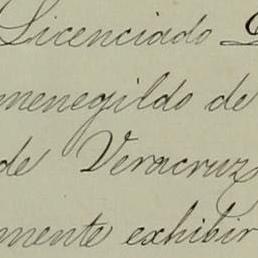 Licenciado
menegildo de
de Veracruz
mente exhibir